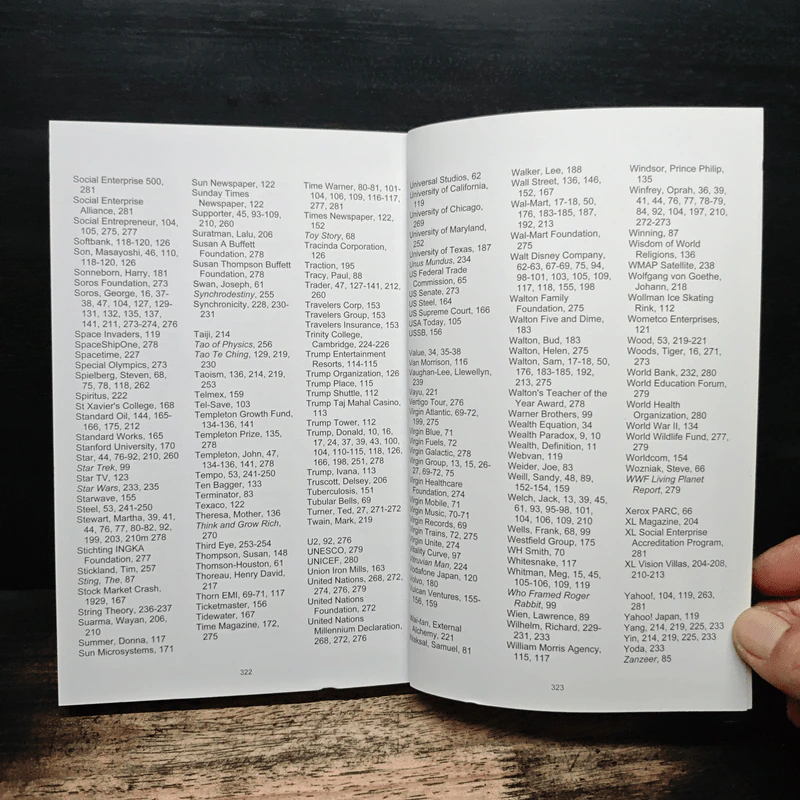 Social Enterprise 500,
281
Social Enterprise
Alliance, 281
Social Entrepreneur, 104,
105, 275, 277
Softbank, 118-120, 126
Son, Masayoshi, 46, 110,
118-120, 126
Sonneborn, Harry, 181
Soros Foundation, 273
Soros, George, 16, 37-
38, 47, 104, 127, 129-
131, 132, 135, 137,
141, 211, 273-274, 276
Space Invaders, 119
SpaceShipOne, 278
Spacetime, 227
Special Olympics, 273
Spielberg, Steven, 68,
75, 78, 118, 262
Spiritus, 222
St Xavier's College, 168
Standard Oil, 144, 165-
166, 175, 212
Standard Works, 165
Stanford University, 170
Star, 44, 76-92, 210, 260
Star Trek, 99
Star TV, 123
Star Wars, 233, 235
Starwave, 155
Steel, 53, 241-250
Stewart, Martha, 39, 41,
44, 76, 77, 80-82, 92,
199, 203, 210m 278
Stichting INGKA
Foundation, 277
Stickland, Tim, 257
Sting, The, 87
Stock Market Crash,
1929, 167
String Theory, 236-237
Suarma, Wayan, 206,
210
Summer, Donna, 117
Sun Microsystems, 171
Sun Newspaper, 122
Sunday Times
Newspaper, 122
Supporter, 45, 93-109,
210, 260
Suratman, Lalu, 206
Susan A Buffett
Foundation, 278
Susan Thompson Buffett
Foundation, 278
Swan, Joseph, 61
Synchrodestiny, 255
Synchronicity, 228, 230-
231
Taiji, 214
Tao of Physics, 256
Tao Te Ching, 129, 219,
230
Taoism, 136, 214, 219,
253
Telmex, 159
Tel-Save, 103
Templeton Growth Fund,
134-136, 141
Templeton Prize, 135,
278
Templeton, John, 47,
134-136, 141, 278
Tempo, 53, 241-250
Ten Bagger, 133
Terminator, 83
Texaco, 122
Theresa, Mother, 136
Think and Grow Rich,
270
Third Eye, 253-254
Thompson, Susan, 148
Thomson-Houston, 61
Thoreau, Henry David,
217
Thorn EMI, 69-71, 117
Ticketmaster, 156
Tidewater, 167
Time Magazine, 172,
275
Time Warner, 80-81, 101-
104, 106, 109, 116-117,
277, 281
Times Newspaper, 122,
152
Toy Story, 68
Tracinda Corporation,
126
Traction, 195
Tracy, Paul, 88
Trader, 47, 127-141, 212,
260
Travelers Corp, 153
Travelers Group, 153
Travelers Insurance, 153
Trinity College,
Cambridge, 224-226
Trump Entertainment
Resorts, 114-115
Trump Organization, 126
Trump Place, 115
Trump Shuttle, 112
Trump Taj Mahal Casino,
113
Trump Tower, 112
Trump, Donald, 10, 16,
17, 24, 37, 39, 43, 100,
104, 110-115, 118, 126,
166, 198, 251, 278
Trump, Ivana, 113
Truscott, Delsey, 206
Tuberculosis, 151
Tubular Bells, 69
Turner, Ted, 27, 271-272
Twain, Mark, 219
U2, 92, 276
UNESCO, 279
UNICEF, 280
Union Iron Mills, 163
United Nations, 268, 272,
274, 276, 279
United Nations
Foundation, 272
United Nations
Millennium Declaration,
268, 272, 276
322
Universal Studios, 62
University of California,
119
University of Chicago,
269
University of Maryland,
252
University of Texas, 187
Unus Mundus, 234
US Federal Trade
Commission, 65
US Senate, 273
US Steel, 164
US Supreme Court, 166
USA Today, 105
USSB, 156
Value, 34, 35-38
Van Morrison, 116
Vaughan-Lee, Llewellyn,
239
Vayu, 221
Vertigo Tour, 276
Virgin Atlantic, 69-72,
199, 275
Virgin Blue, 71
Virgin Fuels, 72
Virgin Galactic, 278
Virgin Group, 13, 15, 26-
27, 69-72, 75
Virgin Healthcare
Foundation, 274
Virgin Mobile, 71
Virgin Music, 70-71
Virgin Records, 69
Virgin Trains, 72, 275
Virgin Unite, 274
Vitality Curve, 97
Vitruvian Man, 224
Vodafone Japan, 120
Volvo, 180
Vulcan Ventures, 155-
156, 159
Wai-fan, External
Alchemy, 221
Waksal, Samuel, 81
Walker, Lee, 188
Wall Street, 136, 146,
152, 167
Wal-Mart, 17-18, 50,
176, 183-185, 187,
192, 213
Wal-Mart Foundation,
275
Walt Disney Company,
62-63, 67-69, 75, 94,
98-101, 103, 105, 109,
117, 118, 155, 198
Walton Family
Foundation, 275
Walton Five and Dime,
183
Walton, Bud, 183
Walton, Helen, 275
Walton, Sam, 17-18, 50,
176, 183-185, 192,
213, 275
Walton's Teacher of the
Year Award, 278
Warner Brothers, 99
Wealth Equation, 34
Wealth Paradox, 9, 10
Wealth, Definition, 11
Webvan, 119
Weider, Joe, 83
Weill, Sandy, 48, 89,
152-154, 159
Welch, Jack, 13, 39, 45,
61, 93, 95-98, 101,
104, 106, 109, 210
Wells, Frank, 68, 99
Westfield Group, 175
WH Smith, 70
Whitesnake, 117
Whitman, Meg, 15, 45,
105-106, 109, 119
Who Framed Roger
Rabbit, 99
Wien, Lawrence, 89
Wilhelm, Richard, 229-
231, 233
William Morris Agency,
115, 117
Windsor, Prince Philip,
135
Winfrey, Oprah, 36, 39,
41, 44, 76, 77, 78-79,
84, 92, 104, 197, 210,
272-273
Winning, 87
Wisdom of World
Religions, 136
WMAP Satellite, 238
Wolfgang von Goethe,
Johann, 218
Wollman Ice Skating
Rink, 112
Wometco Enterprises,
121
Wood, 53, 219-221
Woods, Tiger, 16, 271,
273
World Bank, 232, 280
World Education Forum,
279
World Health
Organization, 280
World War II, 134
World Wildlife Fund, 277,
279
Worldcom, 154
Wozniak, Steve, 66
WWF Living Planet
Report, 279
Xerox PARC, 66
XL Magazine, 204
XL Social Enterprise
Accreditation Program,
281
XL Vision Villas, 204-208,
210-213
Yahoo!, 104, 119, 263,
281
Yahoo! Japan, 119
Yang, 214, 219, 225, 233
Yin, 214, 219, 225, 233
Yoda, 233
Zanzeer, 85
323